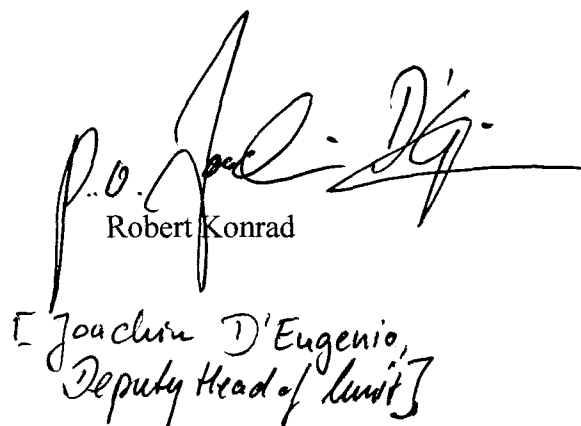 p.o. Joachim D'Eg.
Robert Konrad
[Joachim D'Eugenio,
Deputy Head of Unit]